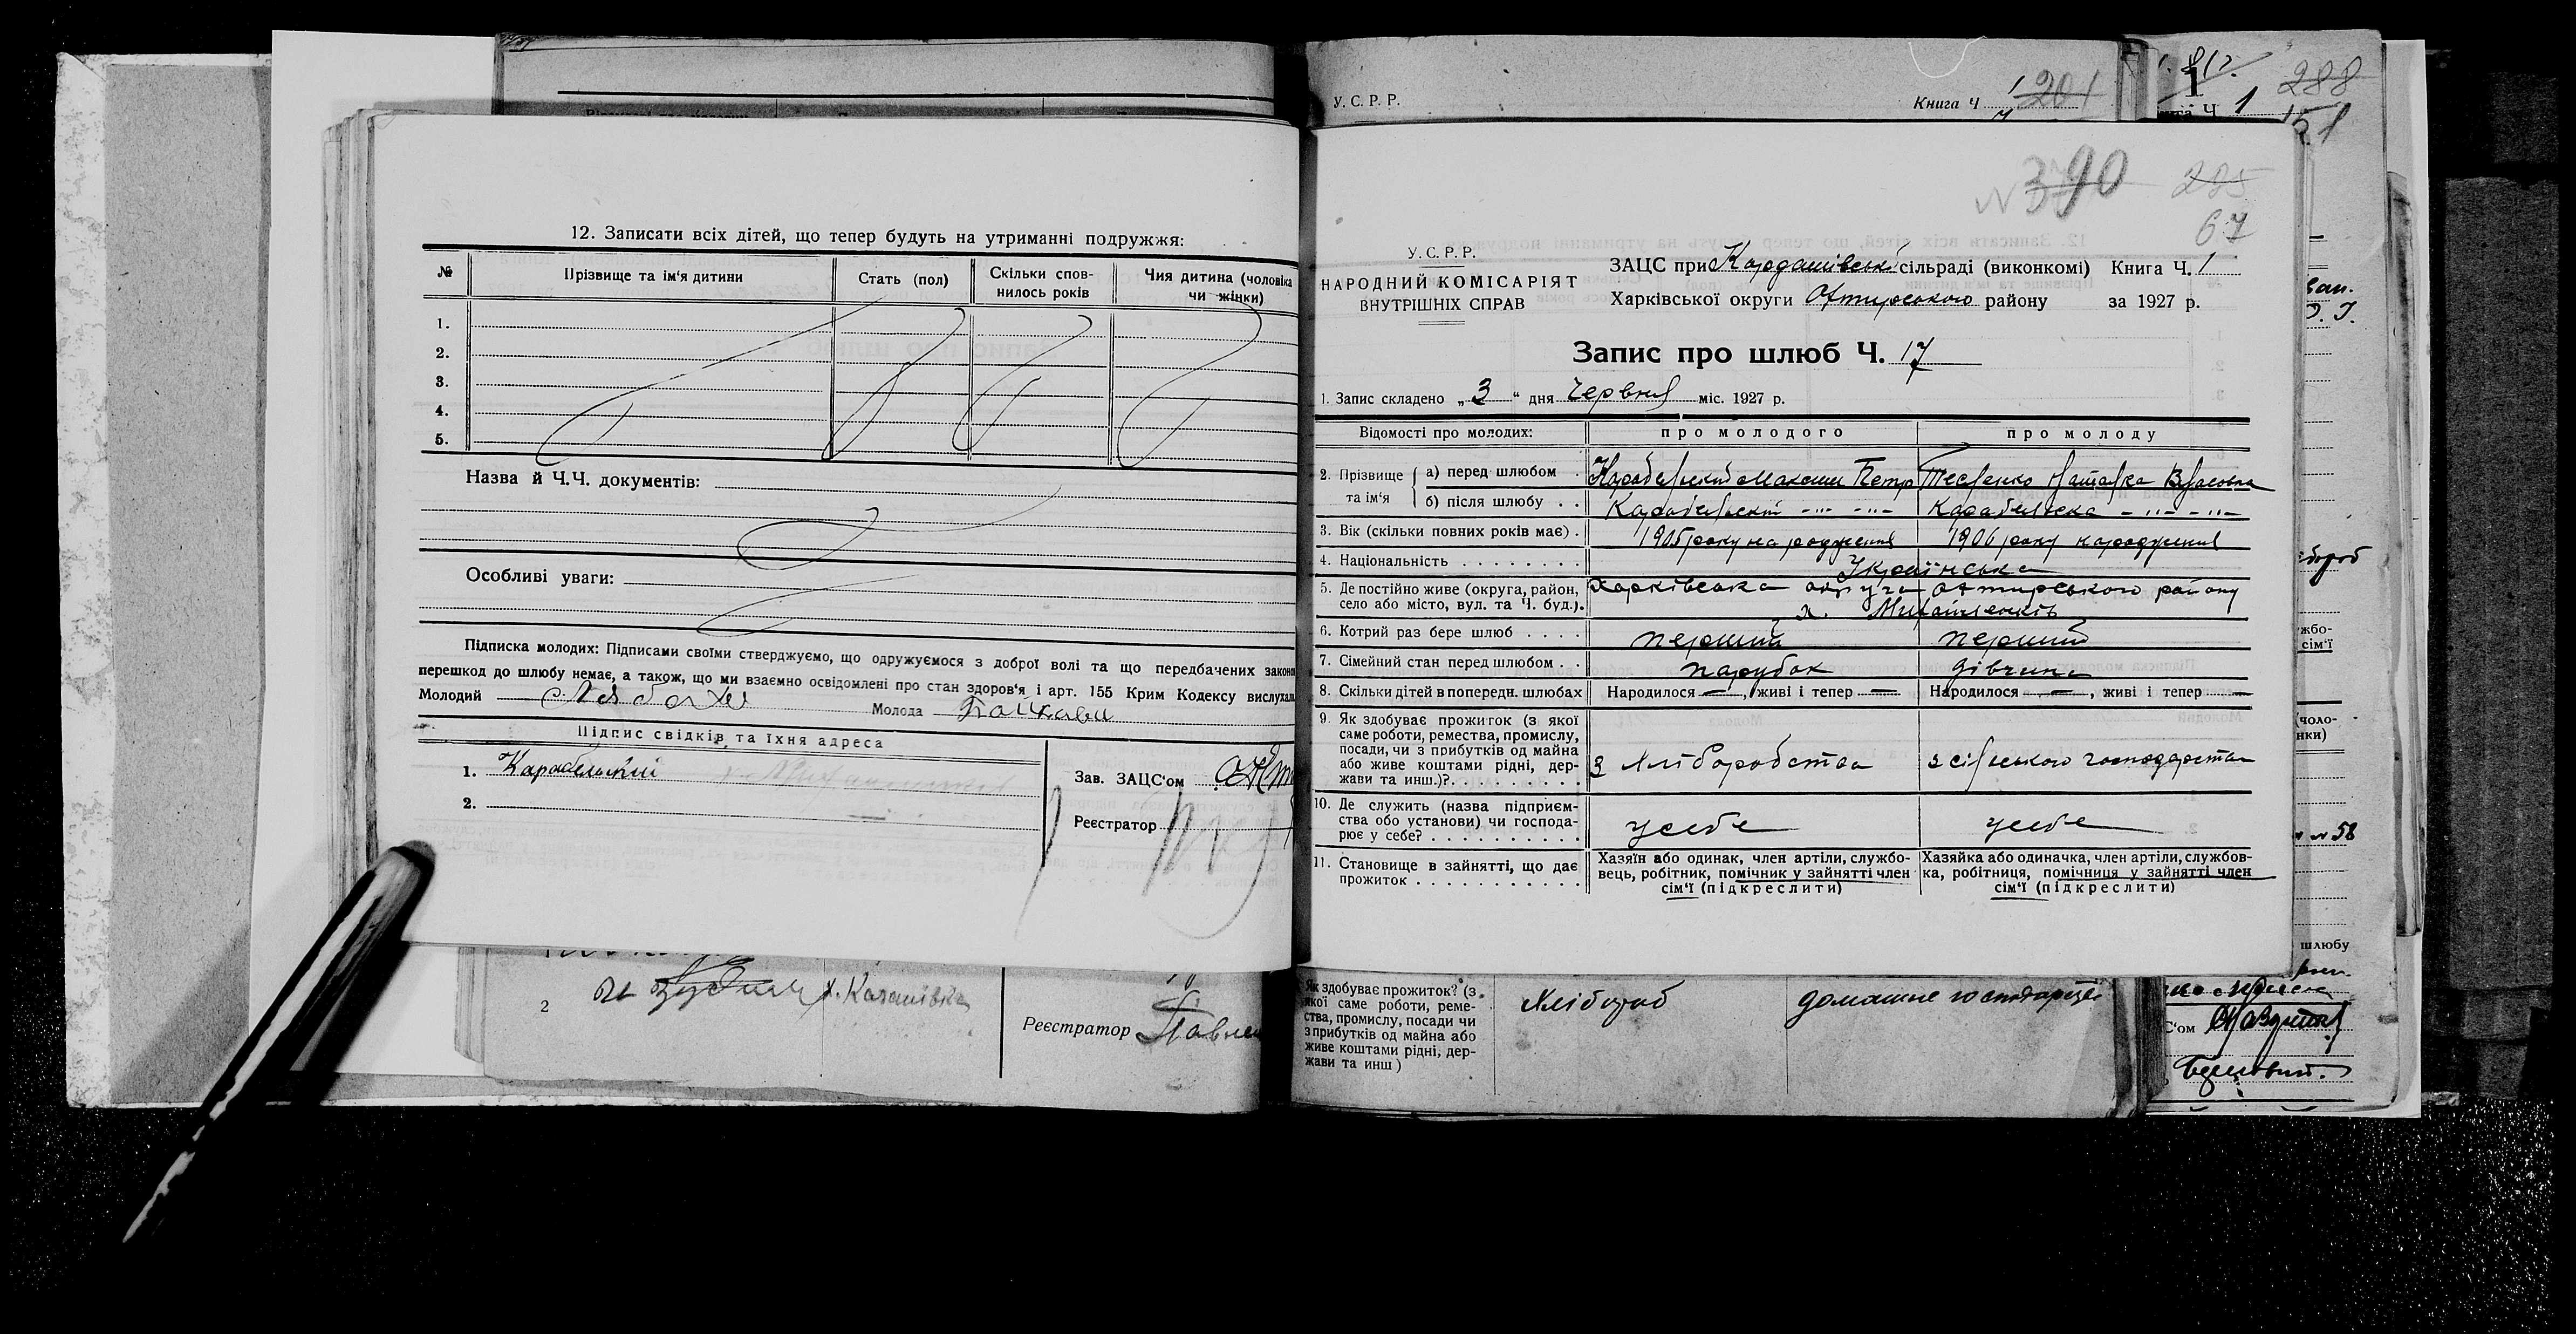 12. Записати всіх дітей, що тепер будуть на утриманні подружжя:
№ Прізвище та ім'я дитини Стать (пол) Скільки сповнилось років Чия дитина (чоловіка чи жінки)
1.
2.
3.
4.
5.
Назва й Ч.Ч. документів:
Особливі уваги:
Підписка молодих: Підписами своїми стверджуємо, що одружуємося з доброї волі та що передбачених законо
перешкод до шлюбу немає, а також, що ми взаємно освідомлені про стан здоров'я і арт. 155 Крим Кодексу вислухал
Молодий Молода
Підпис свідків та їхня адреса
1. Карабельский
2.
Зав. ЗАЦС'ом
Реєстратор
2 х. Каташівка
Реєстратор Павлен
У.С.Р.Р. Книга Ч 1 201
288
Ч. 1 151
N 390 285
67
У.С.Р.Р.
НАРОДНИЙ КОМІСАРІЯТ
ВНУТРІШНІХ СПРАВ
ЗАЦС при Кардашівські сільраді (виконкомі) Книга Ч. 1
Харківської округи Охтирського району за 1927 р.
Запис про шлюб Ч. 17
1. Запис складено „3“ дня Червня міс. 1927 р.
Відомості про молодих: про молодого про молоду
2. Прізвище та ім'я { а) перед шлюбом . Карабельский Максим Петр Тесленко Наталка Власовна
б) після шлюбу . . Карабельский -"- -"- Карабельска -"- -"-
3. Вік (скільки повних років має) . 1905 року народження 1906 року народження
4. Національність . . . . . . . . Українська
5. Де постійно живе (округа, район, Харківська округа Охтирського району
село або місто, вул. та Ч. буд.). х. Михайленків
6. Котрий раз бере шлюб . . . . перший перший
7. Сімейний стан перед шлюбом . . парубок дівчина
8. Скільки дітей в попередн. шлюбах Народилося —, живі і тепер — Народилося —, живі і тепер —
9. Як здобуває прожиток (з якої
саме роботи, ремества, промислу,
посади, чи з прибутків од майна
або живе коштами рідні, дер-
жави та инш.)?. . . . . . . . . з хліборобства з сільського господарства
10. Де служить (назва підприєм-
ства обо установи) чи господа-
рює у себе? . . . . . . . . . . у себе у себе
11. Становище в зайнятті, що дає
прожиток . . . . . . . . . . . .
Хазяїн або одинак, член артіли, службо-
вець, робітник, помічник у зайнятті член
сім'ї (підкреслити)
Хазяйка або одиначка, член артіли, службов-
ка, робітниця, помічниця у зайнятті член
сім'ї (підкреслити)
Як здобуває прожиток? (з
якої саме роботи, реме-
ства, промислу, посади чи
з прибутків од майна або
живе коштами рідні, дер-
жави та инш)
Хлібороб домашне господарство
жбо-
сім'ї
(чоло-
нки)
58
шлюбу
С'ом